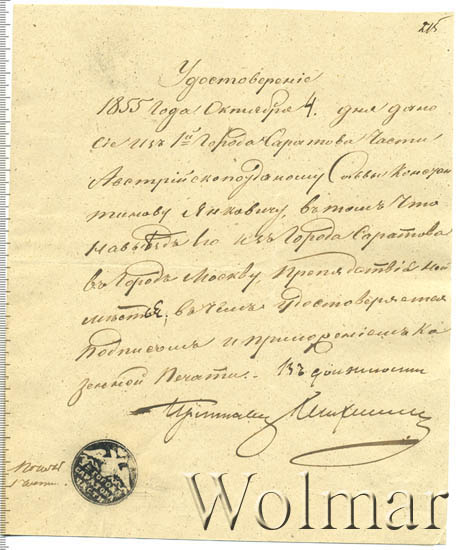 Удостоверенiе
1855 года Октября 4. дня дано
сiе изъ 1й Города Саратова Части
Австрiйскоподаному Саввы Констан
тинову Янковичу, въ томъ что
на выѣздъ его изъ Города Саратова
въ Городъ Москву, препядствiй ной
мѣется, въ чемъ удостоверяется
подписомъ и приложенiемъ Ка
зенной Печати.. Въ должности
Пристава
Wolmar